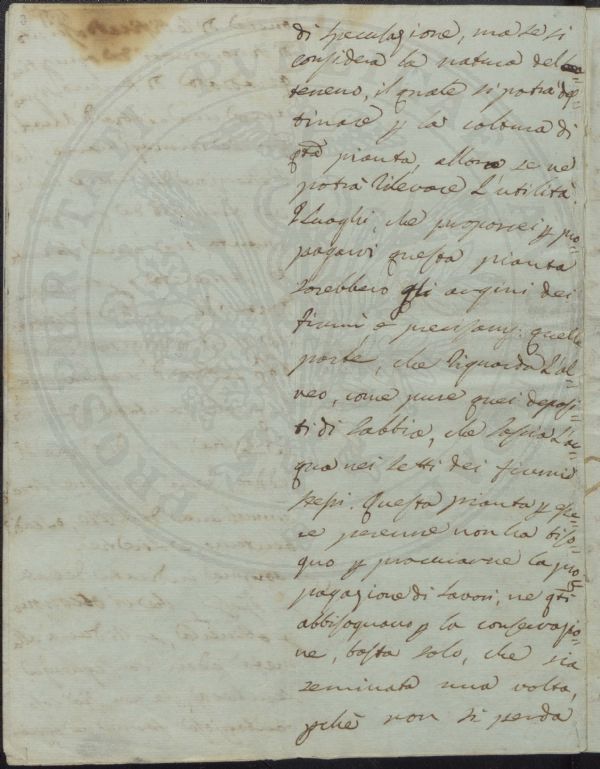 di speculazione, ma se si
considera la natura del
terreno, il quale si potrà des=
tinare p la coltura di
qta pianta, allora se ne
potrà rilevare l'utilità.
I luoghi, che proporrei p pro=
pagarvi questa pianta
sarebbero gli argini dei
fiumi e precisam: quella
parte, che riguarda l'al=
veo, come pure quei deposi=
ti di sabbia, che lascia l'ac=
qua nei letti dei fiumi
stessi. Questa pianta p esse=
re perenne non ha biso=
gno p procurarne la pro=
pagazione di lavori, ne qti
abbisognano p la conservazio=
ne, basta solo, che sia
seminata una volta,
pchè non si perda